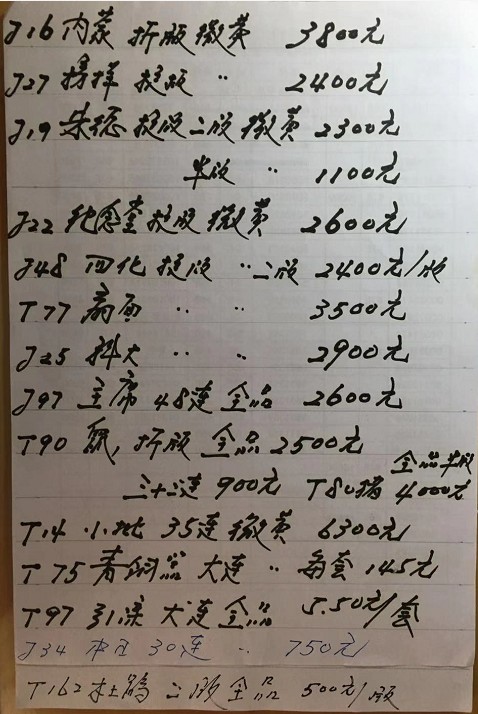 J16 内蒙 折版 微黄 3800元
J27 榜样 挺版 〃 2400元
J19 朱德 挺版 二版 微黄 2300元
半版 〃 1100元
J22 纪念堂 挺版 微黄 2600元
J48 四化 挺版 〃 二版 2400元/版
T77 扇面 〃 〃 3500元
J25 科大 〃 〃 2900元
J97 主席 48连 全品 2600元
T90 鼠, 折版 全品 2500元
全品半版
三十二连 900元 T80猪 4000元
T14 35连 微黄 6300元
T75 青铜器 大连 〃 每套 145元
T97 引滦 大连 全品 5.50元/套
J34 30连 〃 750元
T162 杜鹃 二版 全品 500元/版